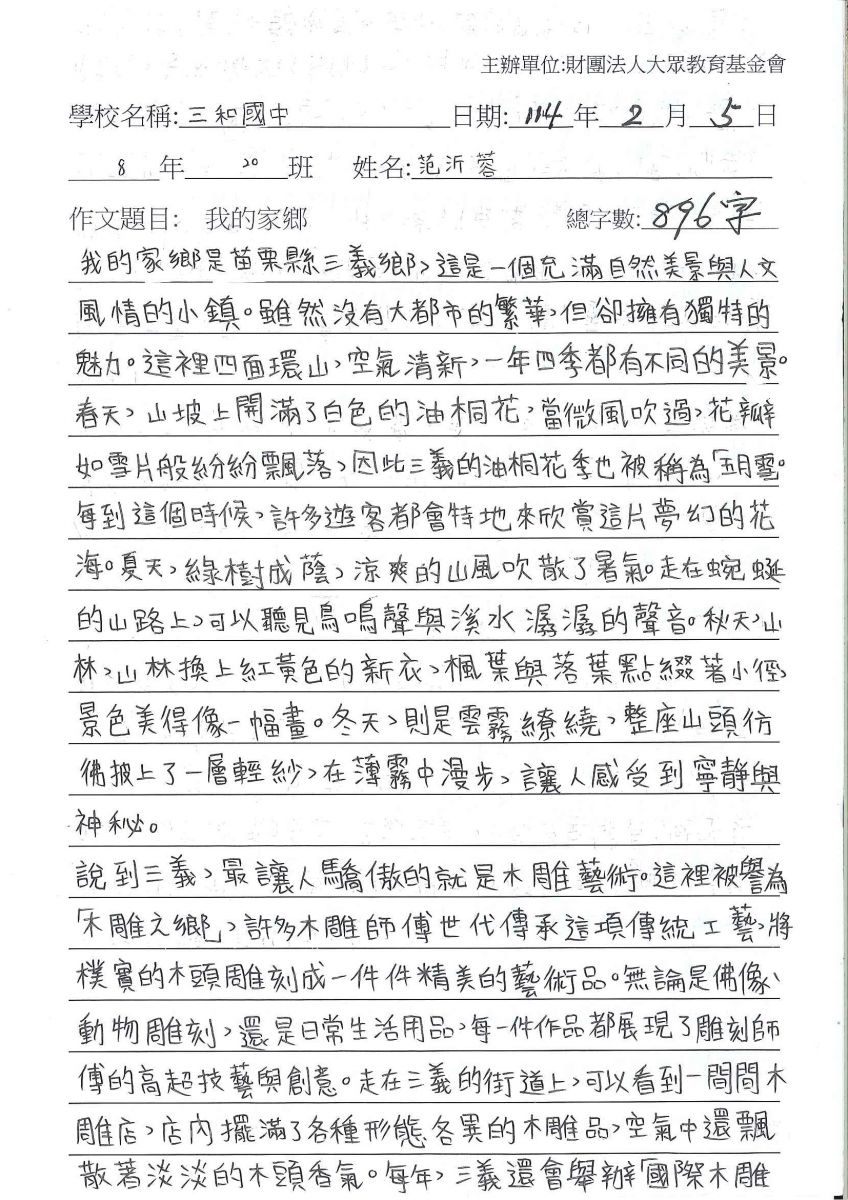 主辦單位:財團法人大眾教育基金會
學校名稱: 三和國中 日期: 114 年 2 月 5 日
8 年 20 班 姓名: 范沂蓉
作文題目: 我的家鄉 總字數: 896字
我的家鄉是苗栗縣三義鄉,這是一個充滿自然美景與人文
風情的小鎮。雖然沒有大都市的繁華,但卻擁有獨特的
魅力。這裡四面環山,空氣清新,一年四季都有不同的美景。
春天,山坡上開滿了白色的油桐花,當微風吹過,花瓣
如雪片般紛紛飄落,因此三義的油桐花季也被稱為「五月雪。
每到這個時候,許多遊客都會特地來欣賞這片夢幻的花
海。夏天,綠樹成蔭,涼爽的山風吹散了暑氣。走在蜿蜒
的山路上,可以聽見鳥鳴聲與溪水潺潺的聲音。秋天,山
林,山林換上紅黃色的新衣,楓葉與落葉點綴著小徑,
景色美得像一幅畫。冬天,則是雲霧繚繞,整座山頭彷
彿披上了一層輕紗,在薄霧中漫步,讓人感受到寧靜與
神秘。
說到三義,最讓人驕傲的就是木雕藝術。這裡被譽為
「木雕之鄉」,許多木雕師傅世代傳承這項傳統工藝,將
樸實的木頭雕刻成一件件精美的藝術品。無論是佛像、
動物雕刻,還是日常生活用品,每一件作品都展現了雕刻師
傅的高超技藝與創意。走在三義的街道上,可以看到一間間木
雕店,店內擺滿了各種形態各異的木雕品,空氣中還飄
散著淡淡的木頭香氣。每年,三義還會舉辦「國際木雕